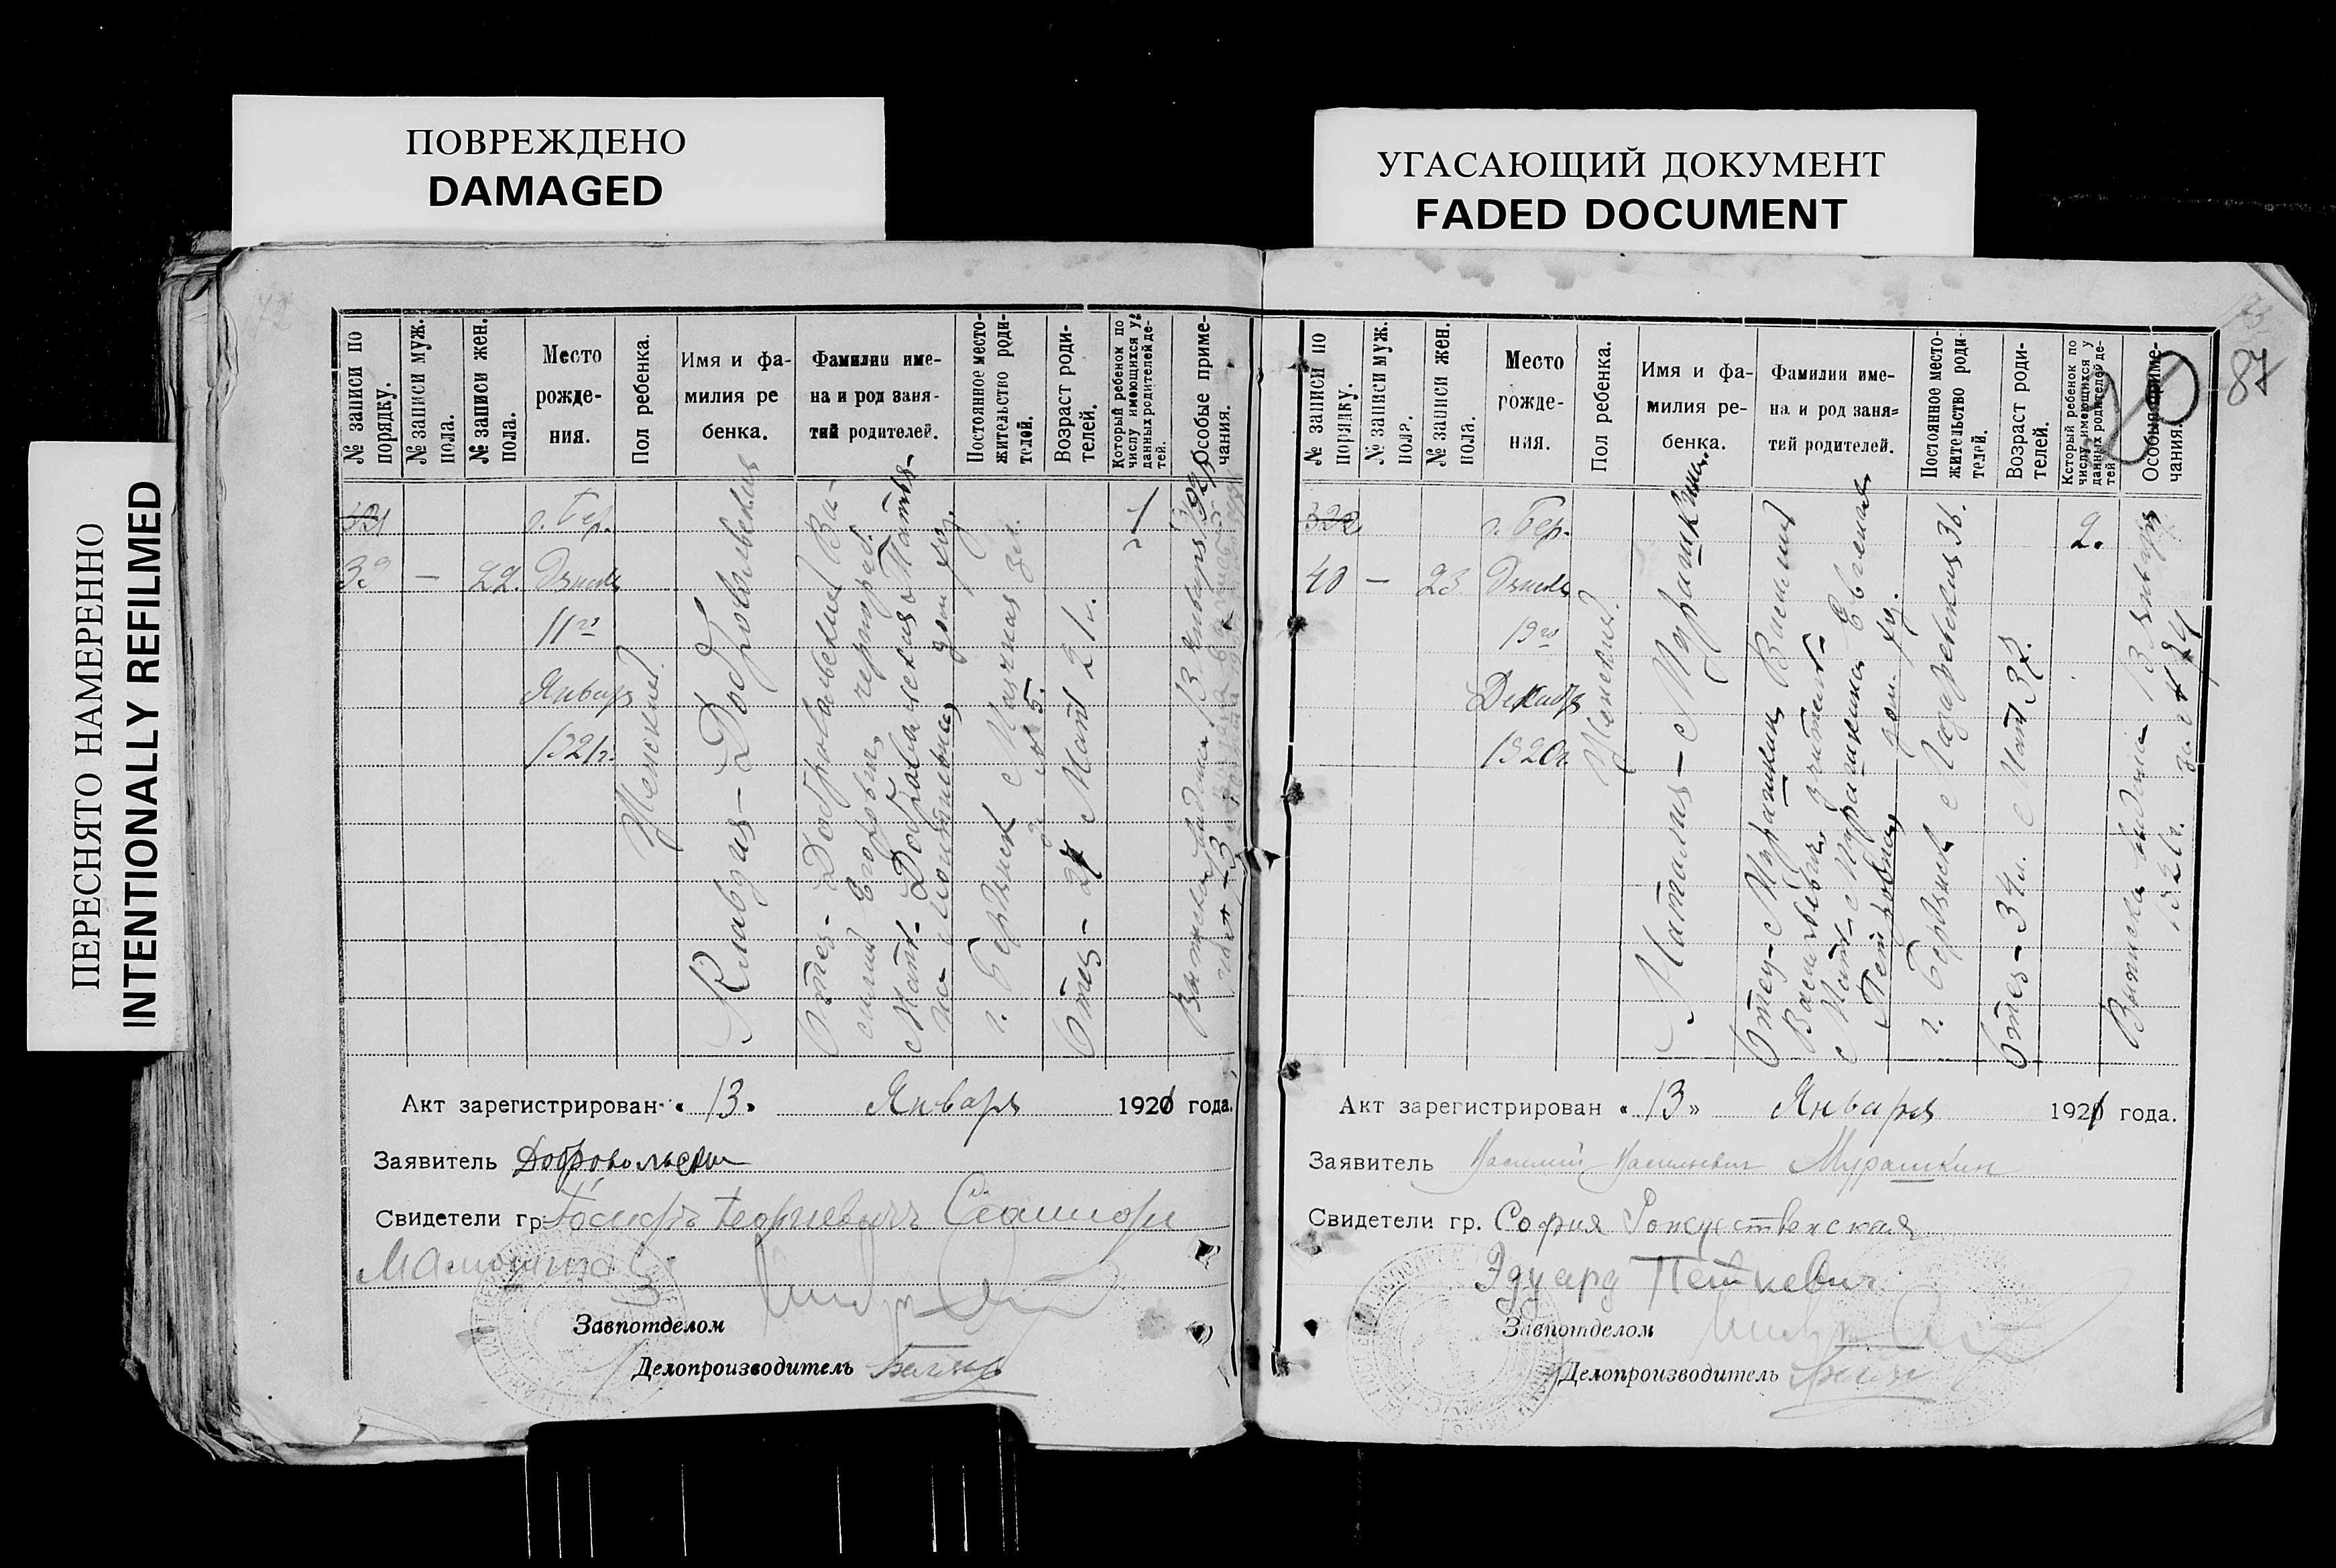 ПОВРЕЖДЕНО
DAMAGED
УГАСАЮЩИЙ ДОКУМЕНТ
FADED DOCUMENT
ПЕРЕСНЯТО НАМЕРЕННО
INTENTIONALLY REFILMED
№ записи по
порядку.
№ записи муж.
пола.
№ записи жен.
пола.
Место
рожде-
ния.
Пол ребенка.
Имя и фа-
милия ре
бенка.
Фамилии име-
на и род заня-
тий родителей.
Постоянное место-
жительство роди-
телей.
Возраст роди-
телей.
Который ребенок по
числу имеющихся у
данных родителей де-
тей.
Особые приме-
чания.
321
39
—
22.
г. Бер.
11го
Января
1921г.
Женский.
Клавдия — Добровольская
Отец - Добровольский Ва-
силий Егорович,
Мать - Добровольская Матря-
г. Бердянск
д. № 5.
Отец - 27 Мать 21 л.
1
Выписка выдана 13 Января 1921
Акт зарегистрирован « 13 » Января 1921 года.
Заявитель Добровольский
Свидетели гр. Георгиевич
Завпотделом
Делопроизводитель
87
20
№ записи по
порядку.
№ записи муж.
пола.
№ записи жен.
пола.
Место
рожде-
ния.
Пол ребенка.
Имя и фа-
милия ре-
бенка.
Фамилии име-
на и род заня-
тий родителей.
Постоянное место-
жительство роди-
телей.
Возраст роди-
телей.
Который ребенок по
числу имеющихся у
данных родителей де-
тей
Особые приме-
чания.
322
40
—
23
г. Бер.
19го
Декабря
1920г.
Женский.
Наталия — Мурашкина.
Отец - Мурашкин Василий
Васильевич, учитель
Мать - Мурашкина Евгения
Петровна, дом. хоз.
г. Бердянск Лазаревская 36.
Отец - 34 л. Мать 37.
2.
Выписка выдана 13 Января
1921г. за № 24
Акт зарегистрирован « 13 » Января 1921 года.
Заявитель Василий Васильевич Мурашкин
Свидетели гр. София Рождественская
Эдуард Петкевич
Завпотделом
Делопроизводитель